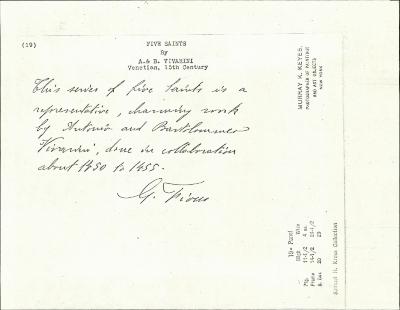 (19)
FIVE SAINTS
By
A.& B. VIVARINI
Venetian, 15th Century
This series of five Saints is a
representative, charming work
by Antonio and Bartolommeo
Vivarini, done in collaboration
about 1450 to 1455.
G. Fiocco
MURRAY K. KEYES
PHOTOGRAPHER OF PAINTINGS
AND ART OBJECTS
NEW YORK
19= Panel
High Wide
Samuel H. Kress Collection